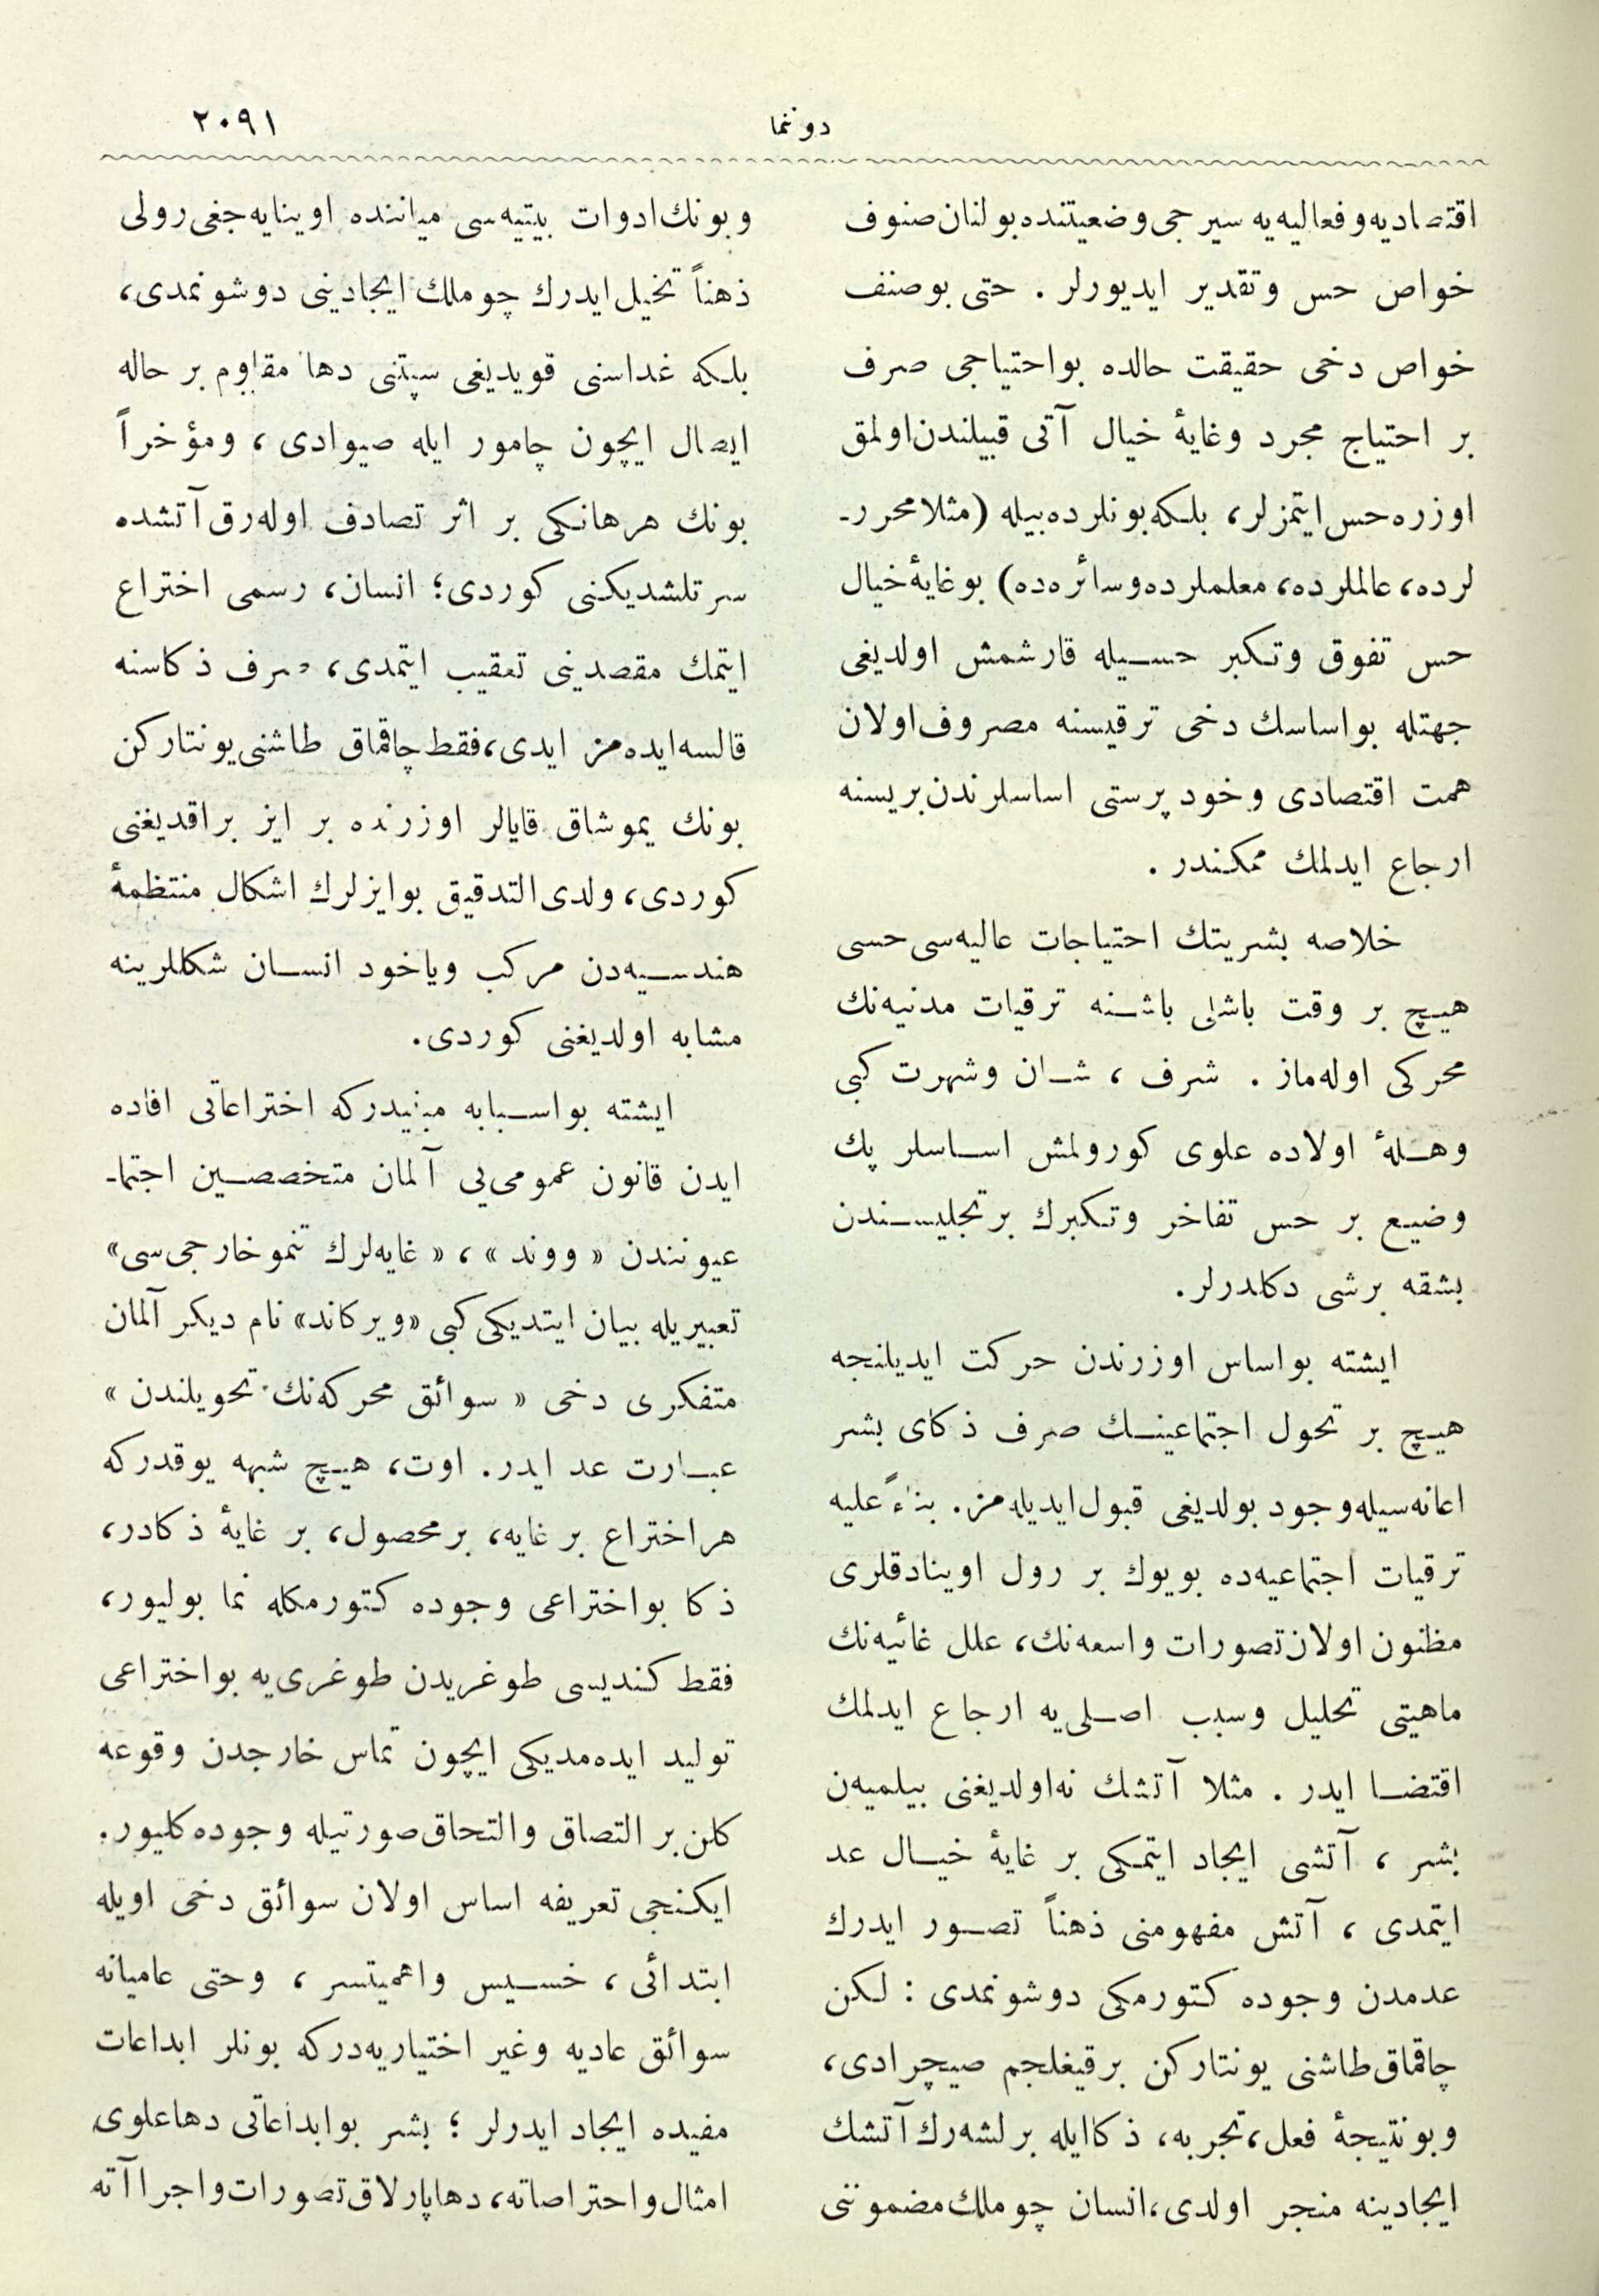 ٢٠٩١
دونما
اقتصاديه و فعاليه يه سيرجى وضعيتنده بولنان صنوف
خواص حس وتقدير ايديورلر . حتى بو صنف
خواص دخى حقيقت حالده بو احتياجى صرف
بر احتياج مجرد وغايهٔ خيال آتى قبيلندن اولمق
اوزره حس ايتمزلر، بلكه بونلرده بيله (مثلا محررـ
لرده، عالملرده، معلملرده و سائره ده) بو غايهٔ خيال
حس تفوق وتكبر حسيله قارشمش اولديغى
جهتله بو اساسك دخى ترقيسنه مصروف اولان
همت اقتصادى و خود پرستى اساسلرندن بريسنه
ارجاع ايدلمك ممكندر .
خلاصه بشريتك احتياجات عاليه سى حسى
هيچ بر وقت باشلى باشنه ترقيات مدنيه نك
محركى اوله ماز . شرف ، شان وشهرت كبى
وهلهٔ اولاده علوى كورولمش اساسلر پك
وضيع بر حس تفاخر وتكبرك بر تجليسندن
بشقه برشى دكلدرلر.
ايشته بو اساس اوزرندن حركت ايديلنجه
هيچ بر تحول اجتماعينك صرف ذكاى بشر
اعانه سيله وجود بولديغى قبول ايديله مز. بناءً عليه
ترقيات اجتماعيه ده بويوك بر رول اوينادقلرى
مظنون اولان تصورات واسعه نك، علل غائيه نك
ماهيتى تحليل وسبب اصلى يه ارجاع ايدلمك
اقتضا ايدر . مثلا آتشك نه اولديغنى بيلميه ن
بشر ، آتشى ايجاد ايتمكى بر غايهٔ خيال عد
ايتمدى ، آتش مفهومنى ذهناً تصور ايدرك
عدمدن وجوده كتورمكى دوشونمدى : لكن
چاقماق طاشنى يونتاركن بر قيغلجم صيچرادى،
و بو نتيجهٔ فعل، تجربه، ذكا ايله برلشه رك آتشك
ايجادينه منجر اولدى، انسان چوملك مضموننى
و بونك ادوات بيتيه سى ميانںده اوينايه جغى رولى
ذهناً تخيل ايدرك چوملك ايجادينى دوشونمدى،
بلكه غداسنى قويديغى سپتنى دها مقاوم بر حاله
ايصال ايچون چامور ايله صيوادى ، ومؤخراً
بونك هرهانكى بر اثر تصادف اوله رق آتشده
سرتلشديكنى كوردى؛ انسان، رسمى اختراع
ايتمك مقصدينى تعقيب ايتمدى، صرف ذكاسنه
قالسه ايده مز ايدى، فقط چاقماق طاشنى يونتاركن
بونك يموشاق قايالر اوزرنده بر ايز براقديغنى
كوردى، ولدى التدقيق بو ايزلرك اشكال منتظمهٔ
هندسيه دن مركب وياخود انسان شكللرينه
مشابه اولديغنى كوردى.
ايشته بو اسبابه مبنيدركه اختراعاتى افاده
ايدن قانون عمومى يى آلمان متخصصين اجتماـ
عيونندن « ووند » ، « غايه لرك تنمو خارجى سى»
تعبيريله بيان ايتديكى كبى «ويركاند» نام ديكر آلمان
متفكرى دخى « سوائق محركه نك تحويلندن »
عبارت عد ايدر. اوت، هيچ شبهه يوقدركه
هر اختراع بر غايه، بر محصول، بر غايهٔ ذكادر،
ذكا بو اختراعى وجوده كتورمكله نما بوليور،
فقط كنديسى طوغريدن طوغرى يه بو اختراعى
توليد ايده مديكى ايچون تماس خارجدن وقوعه
كلن بر التصاق والتحاق صورتيله وجوده كليور.
ايكنجى تعريفه اساس اولان سوائق دخى اويله
ابتدائى ، خسيس واهميتسر ، وحتى عاميانه
سوائق عاديه وغير اختياريه دركه بونلر ابداعات
مفيده ايجاد ايدرلر ؛ بشر بو ابداعاتى دها علوى
امثال و احتراصاته، دها پارلاق تصورات و اجراآته